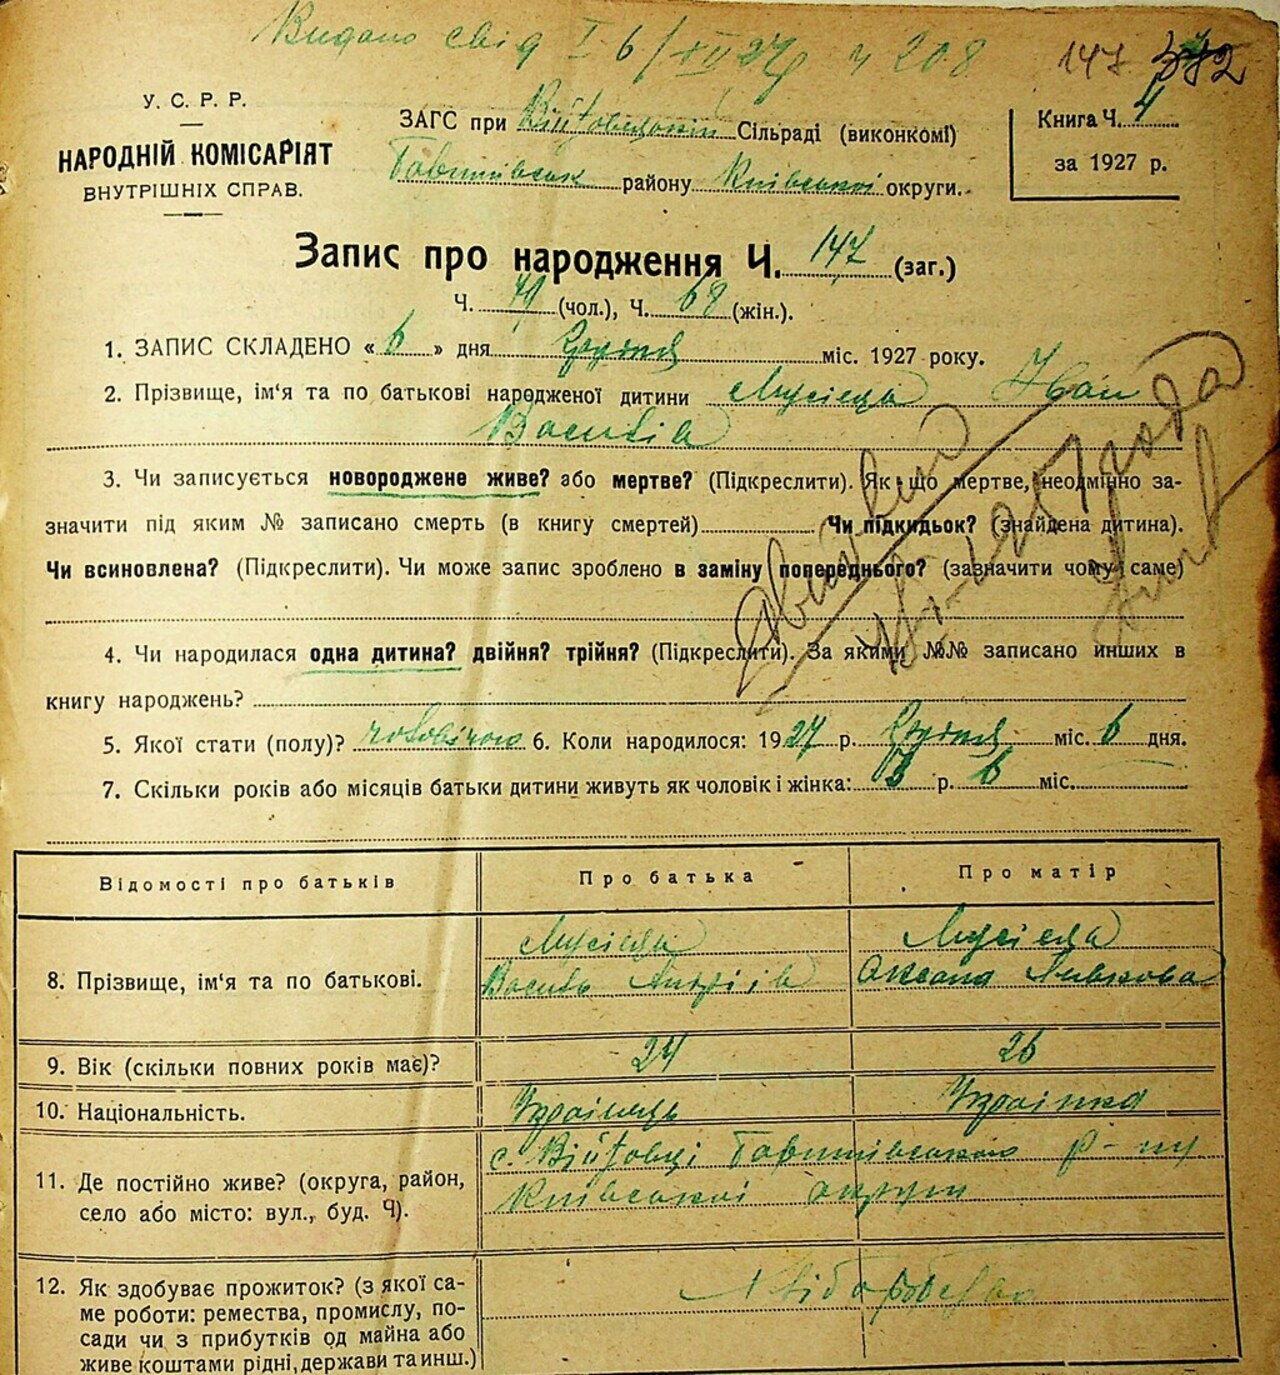 Видано свід I-6/XII 27 р ч 208 147
У. С. Р. Р.
НАРОДНІЙ КОМІСАРІЯТ
ВНУТРІШНІХ СПРАВ.
ЗАГС при Війтовецькій Сільраді (виконкомі)
району Київської округи.
Книга Ч. 4
за 1927 р.
Запис про народження Ч. 147 (заг.)
Ч. 79 (чол.), Ч. 68 (жін.).
1. ЗАПИС СКЛАДЕНО « 6 » дня Грудня міс. 1927 року.
2. Прізвище, ім'я та по батькові народженої дитини Мусієць Іван
Василів
3. Чи записується новороджене живе? або мертве? (Підкреслити). Як що мертве, неодмінно за-
значити під яким № записано смерть (в книгу смертей) Чи підкидьок? (знайдена дитина).
Чи всиновлена? (Підкреслити). Чи може запис зроблено в заміну попереднього? (зазначити чому саме)
4. Чи народилася одна дитина? двійня? трійня? (Підкреслити). За якими №№ записано инших в
книгу народжень?
5. Якої стати (полу)? чоловічого 6. Коли народилося: 1927 р. Грудня міс. 6 дня.
7. Скільки років або місяців батьки дитини живуть як чоловік і жінка: 3 р. 6 міс.
Відомості про батьків Про батька Про матір
8. Прізвище, ім'я та по батькові.
Мусієць
Василь Андріїв
Мусієць
Оксана
9. Вік (скільки повних років має)? 24 26
10. Національність. Українець Українка
11. Де постійно живе? (округа, район,
село або місто: вул., буд. Ч).
с. Війтовці р-ну
Київської округи
12. Як здобуває прожиток? (з якої са-
ме роботи: ремества, промислу, по-
сади чи з прибутків од майна або
живе коштами рідні, держави та инш.)
Хліборобство